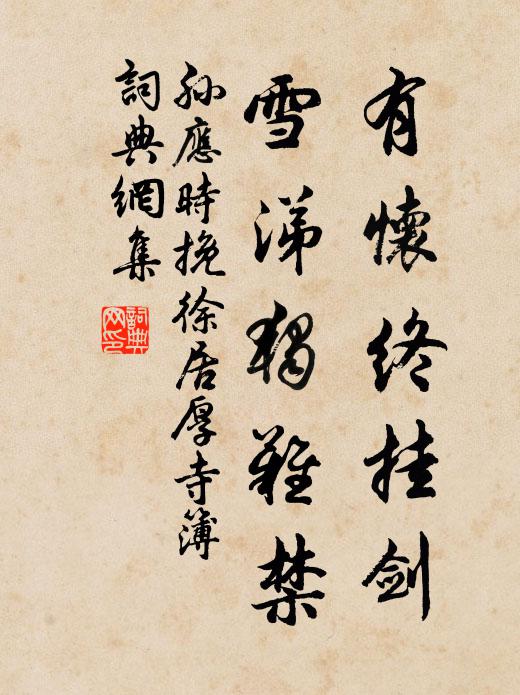 有懷終挂劍
雪涕獨難禁
孫應時挽徐居厚寺簿
詞典網集
詞典网印